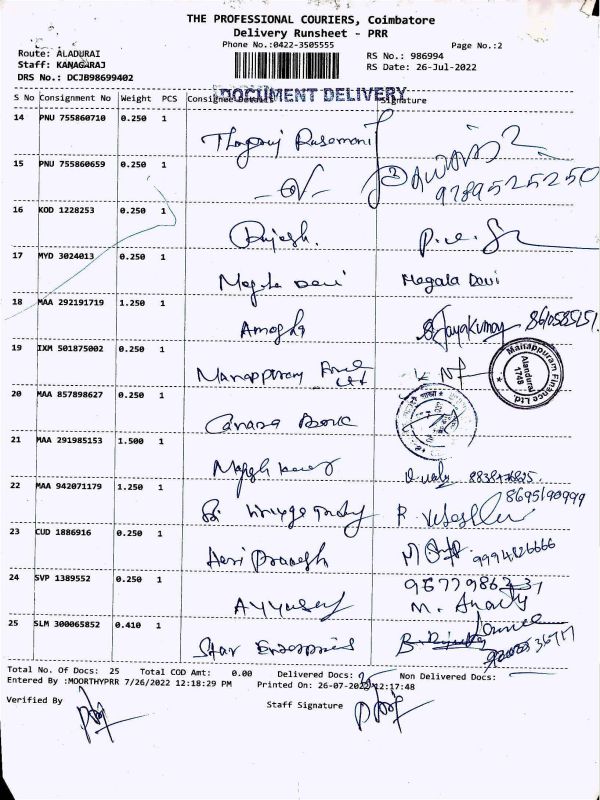 THE PROFESSIONAL COURIERS, Coimbatore
Delivery Runsheet - PRR
Phone No.:0422-3505555 Page No.:2
Route: ALADURAI RS No.: 986994
Staff: KANAGARAJ RS Date: 26-Jul-2022
DRS No.: DCJB98699402
DOCUMENT DELIVERY
S No Consignment No Weight PCS Consignee Details Signature
14 PNU 755860710 0.250 1
15 PNU 755860659 0.250 1
9789525250
16 KOD 1228253 0.250 1 Rajesh.
17 MYD 3024013 0.250 1 Megala Devi Megala Devi
18 MAA 292191719 1.250 1 Amogha Jayakumar
19 IXM 501875002 0.250 1 Manappuram
Manappuram Finance Ltd. Alandurai 1748
20 MAA 857898627 0.250 1 Canara Bank
21 MAA 291985153 1.500 1
22 MAA 942071179 1.250 1 8695190999
23 CUD 1886916 0.250 1 Hari Prakash 9994826666
24 SVP 1389552 0.250 1
25 SLM 300065852 0.410 1 Star Enterprises
Total No. Of Docs: 25 Total COD Amt: 0.00 Delivered Docs: 25 Non Delivered Docs:
Entered By :MOORTHYPRR 7/26/2022 12:18:29 PM Printed On: 26-07-2022 12:17:48
Verified By Staff Signature